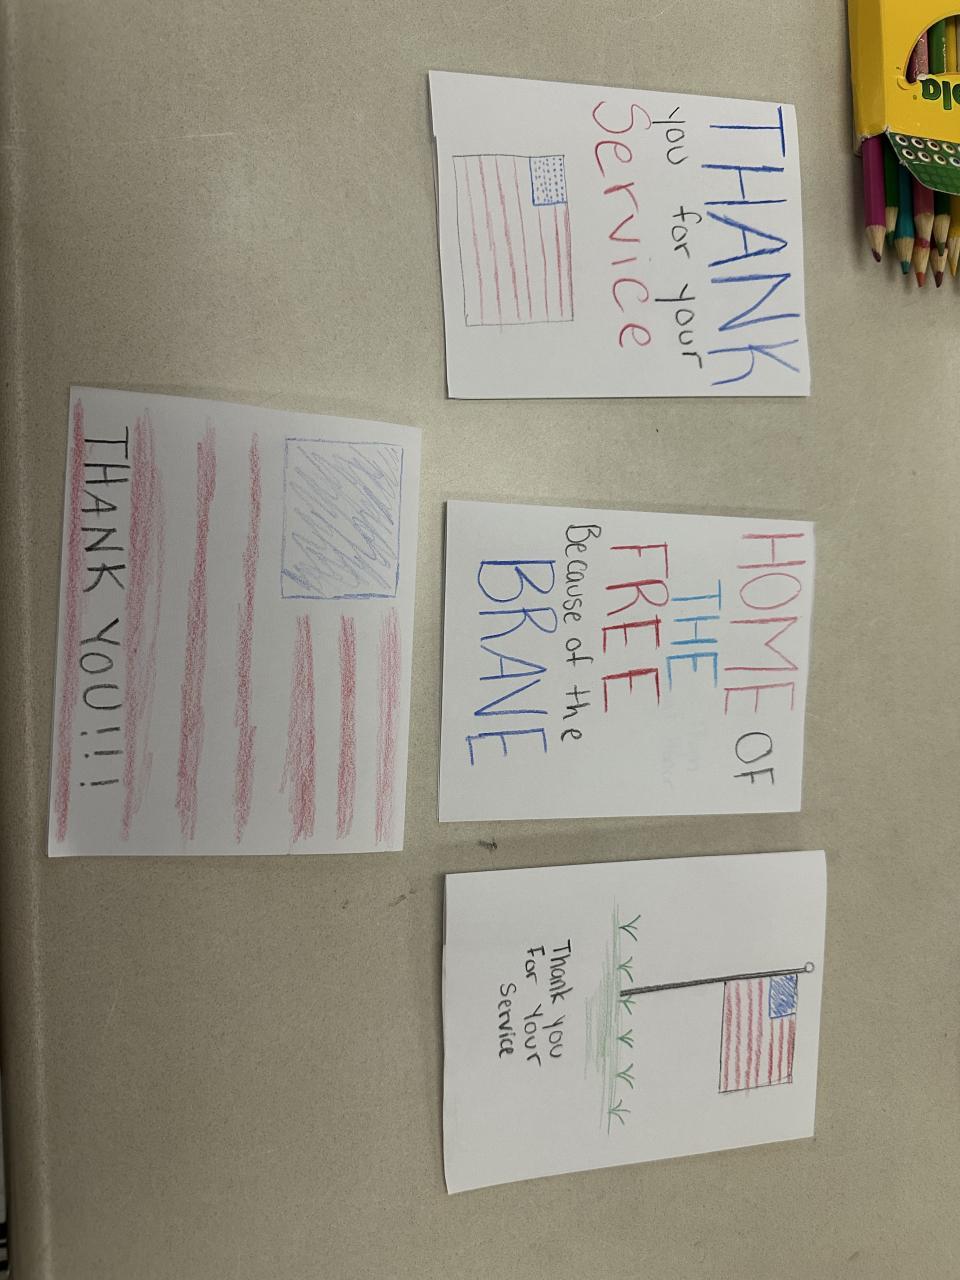 THANK
you for your
Service
HOME OF
THE
FREE
Because of the
BRAVE
Thank you
For Your
Service
THANK YOU!!!
ola